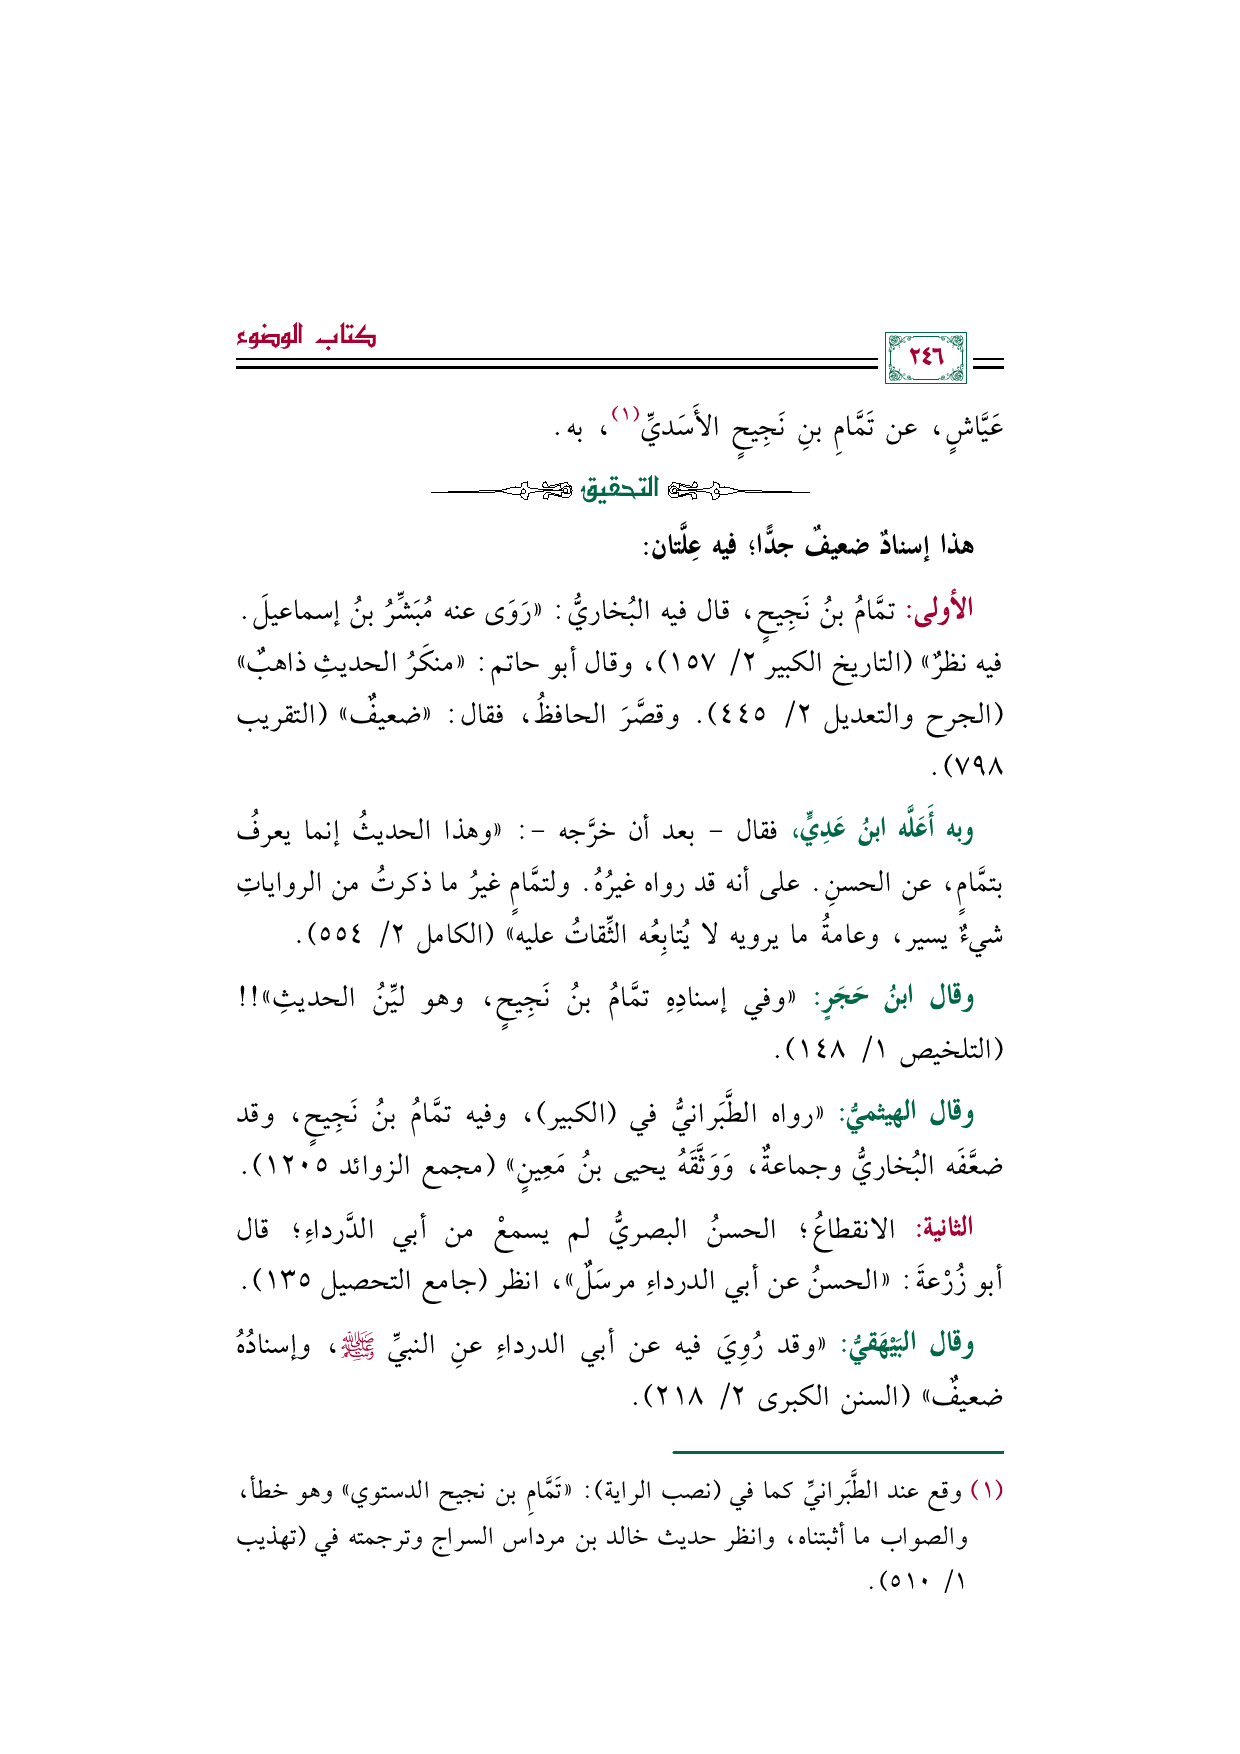 كتاب الوضوء
٢٤٦
عَيَّاشٍ، عن تَمَّامِ بنِ نَجِيحٍ الأَسَديِّ(١)، به.
التحقيق
هذا إسنادٌ ضعيفٌ جدًّا؛ فيه عِلَّتان:
الأولى: تمَّامُ بنُ نَجِيحٍ، قال فيه البُخاريُّ: «رَوَى عنه مُبَشِّرُ بنُ إسماعيلَ.
فيه نظرٌ» (التاريخ الكبير ٢/ ١٥٧)، وقال أبو حاتم: «منكَرُ الحديثِ ذاهبٌ»
(الجرح والتعديل ٢/ ٤٤٥). وقصَّرَ الحافظُ، فقال: «ضعيفٌ» (التقريب
٧٩٨).
وبه أَعَلَّه ابنُ عَدِيٍّ، فقال - بعد أن خرَّجه -: «وهذا الحديثُ إنما يعرفُ
بتمَّامٍ، عن الحسنِ. على أنه قد رواه غيرُهُ. ولتمَّامٍ غيرُ ما ذكرتُ من الرواياتِ
شيءٌ يسير، وعامةُ ما يرويه لا يُتابِعُه الثِّقاتُ عليه» (الكامل ٢/ ٥٥٤).
وقال ابنُ حَجَرٍ: «وفي إسنادِهِ تمَّامُ بنُ نَجِيحٍ، وهو ليِّنُ الحديثِ»!!
(التلخيص ١/ ١٤٨).
وقال الهيثميُّ: «رواه الطَّبَرانيُّ في (الكبير)، وفيه تمَّامُ بنُ نَجِيحٍ، وقد
ضعَّفَه البُخاريُّ وجماعةٌ، وَوَثَّقَهُ يحيى بنُ مَعِينٍ» (مجمع الزوائد ١٢٠٥).
الثانية: الانقطاعُ؛ الحسنُ البصريُّ لم يسمعْ من أبي الدَّرداءِ؛ قال
أبو زُرْعةَ: «الحسنُ عن أبي الدرداءِ مرسَلٌ»، انظر (جامع التحصيل ١٣٥).
وقال البَيْهَقيُّ: «وقد رُوِيَ فيه عن أبي الدرداءِ عنِ النبيِّ ﷺ، وإسنادُهُ
ضعيفٌ» (السنن الكبرى ٢/ ٢١٨).
(١) وقع عند الطَّبَرانيِّ كما في (نصب الراية): «تَمَّامِ بن نجيح الدستوي» وهو خطأ،
والصواب ما أثبتناه، وانظر حديث خالد بن مرداس السراج وترجمته في (تهذيب
١/ ٥١٠).